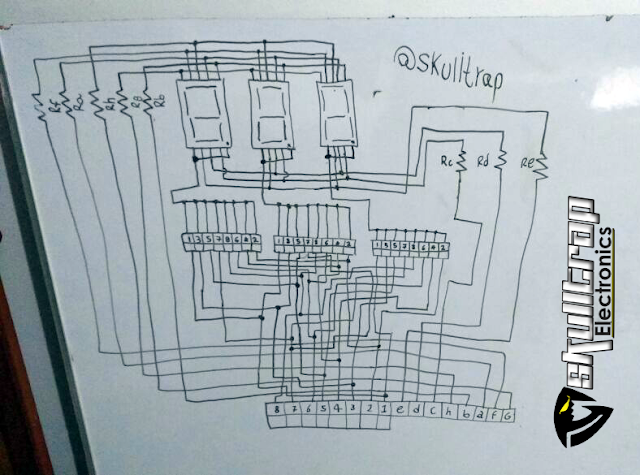 @skulltrap
Rf Ra Rh Rg Rb
Rc Rd Re
1 3 5 7 8 6 4 2
1 3 5 7 8 6 4 2
1 3 5 7 8 6 4 2
8 7 6 5 4 3 2 1 e d c h b a f G
Skulltrap
Electronics